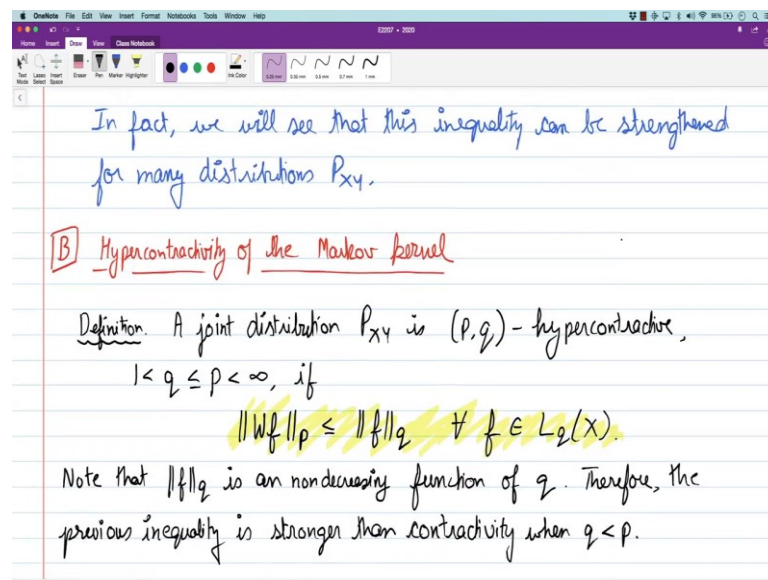 OneNote File Edit View Insert Format Notebooks Tools Window Help
E2207 - 2020
Home Insert Draw View Class Notebook
Text Mode Lasso Select Insert Space Eraser Pen Marker Highlighter Ink Color 0.25 mm 0.35 mm 0.5 mm 0.7 mm 1 mm
In fact, we will see that this inequality can be strengthened
for many distributions P_XY.
B Hypercontractivity of the Markov kernel
Definition. A joint distribution P_XY is (p,q) - hypercontractive,
1 < q ≤ p < ∞, if
||Wf||_p ≤ ||f||_q ∀ f ∈ L_q(X).
Note that ||f||_q is an nondecreasing function of q. Therefore, the
previous inequality is stronger than contractivity when q < p.